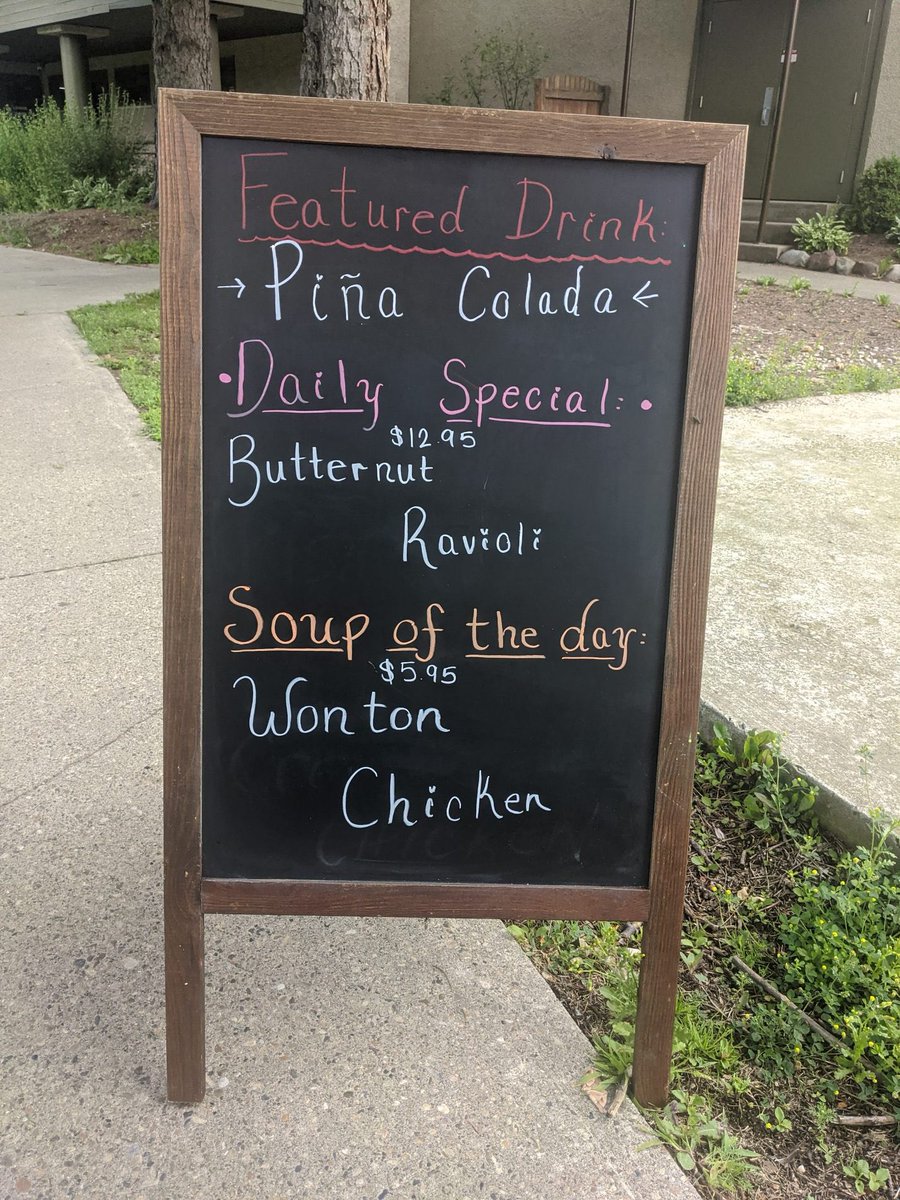 Featured Drink:
→ Piña Colada ←
• Daily Special: •
$12.95
Butternut
Ravioli
Soup of the day:
$5.95
Wonton
Chicken